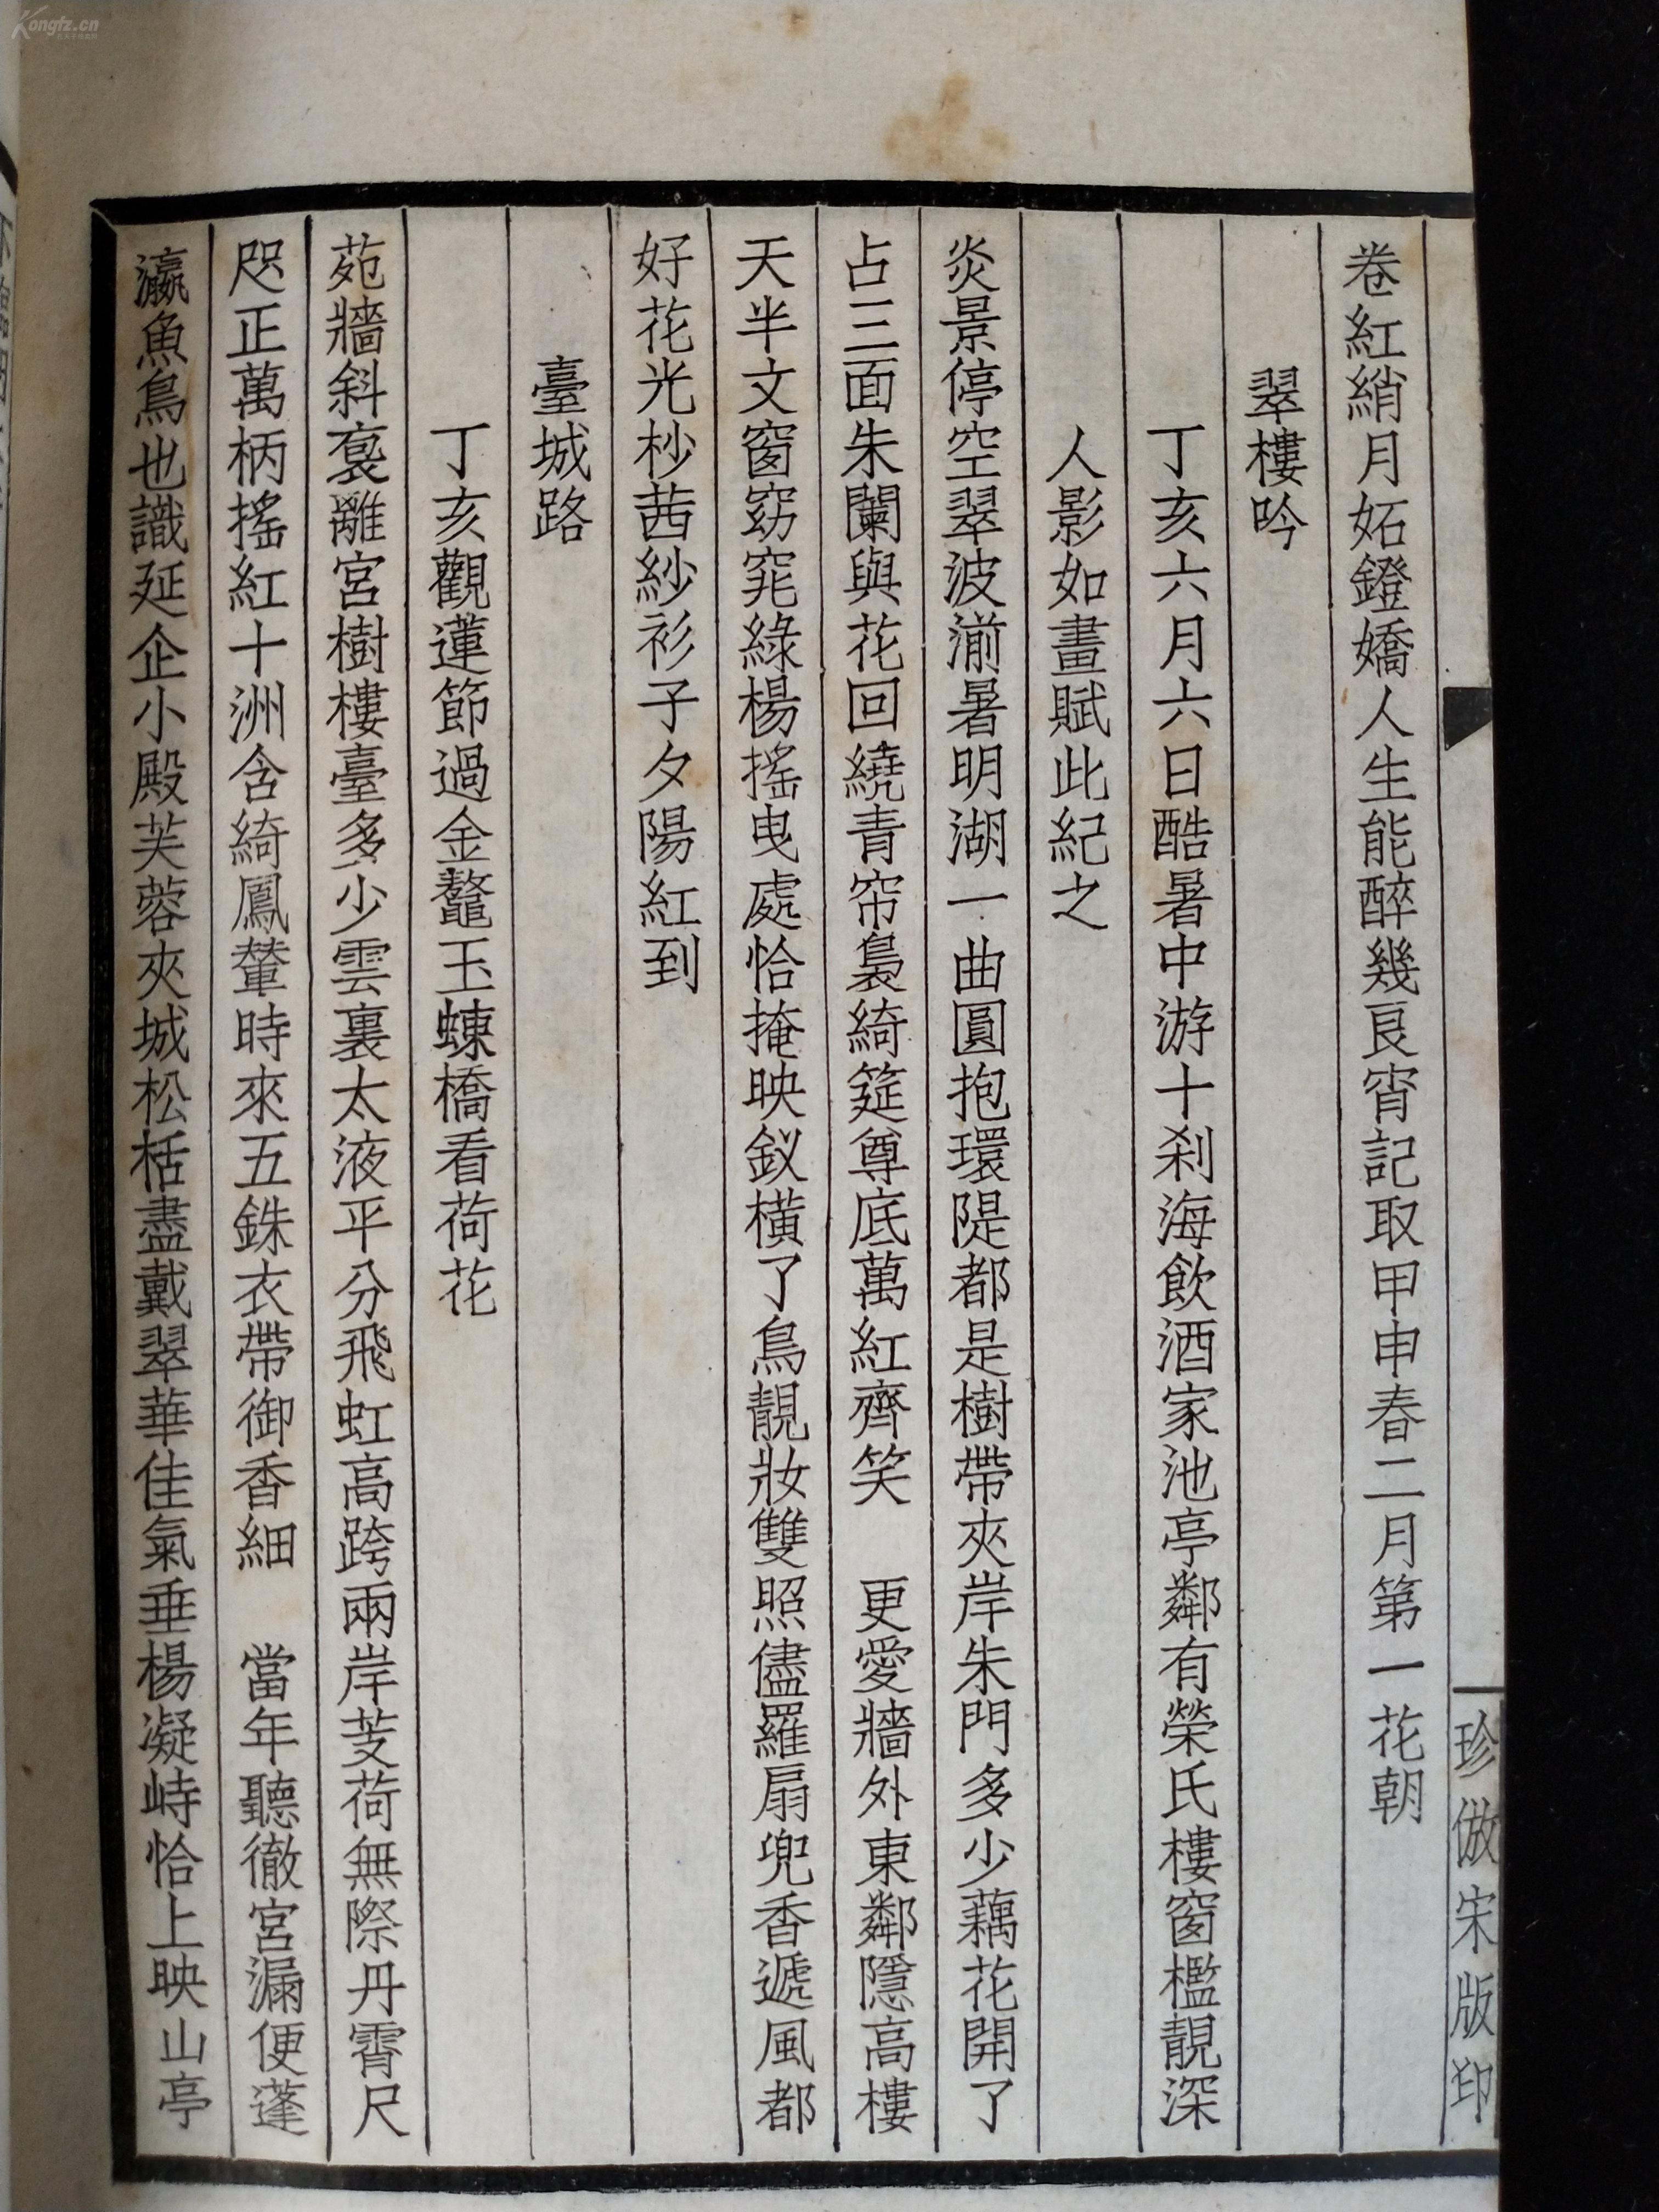 卷紅綃月妬鐙嬌人生能醉幾良宵記取甲申春二月第一花朝
翠樓吟
丁亥六月六日酷暑中游十刹海飲酒家池亭鄰有榮氏樓窗檻靚深
人影如畫賦此紀之
炎景停空翠波湔暑明湖一曲圓抱環隄都是樹帶夾岸朱門多少藕花開了
占三面朱闌與花回繞青帘裊綺筵尊底萬紅齊笑　更愛牆外東鄰隱高樓
天半文窗窈窕綠楊搖曳處恰掩映釵橫了鳥靚妝雙照儘羅扇兜香遞風都
好花光杪茜紗衫子夕陽紅到
臺城路
丁亥觀蓮節過金鼇玉蝀橋看荷花
苑牆斜裦離宮樹樓臺多少雲裏太液平分飛虹高跨兩岸芰荷無際丹霄尺
咫正萬柄搖紅十洲含綺鳳輦時來五銖衣帶御香細　當年聽徹宮漏便蓬
瀛魚鳥也識延企小殿芙蓉夾城松栝盡戴翠華佳氣垂楊凝峙恰上映山亭
珍倣宋版印
Kongfz.cn